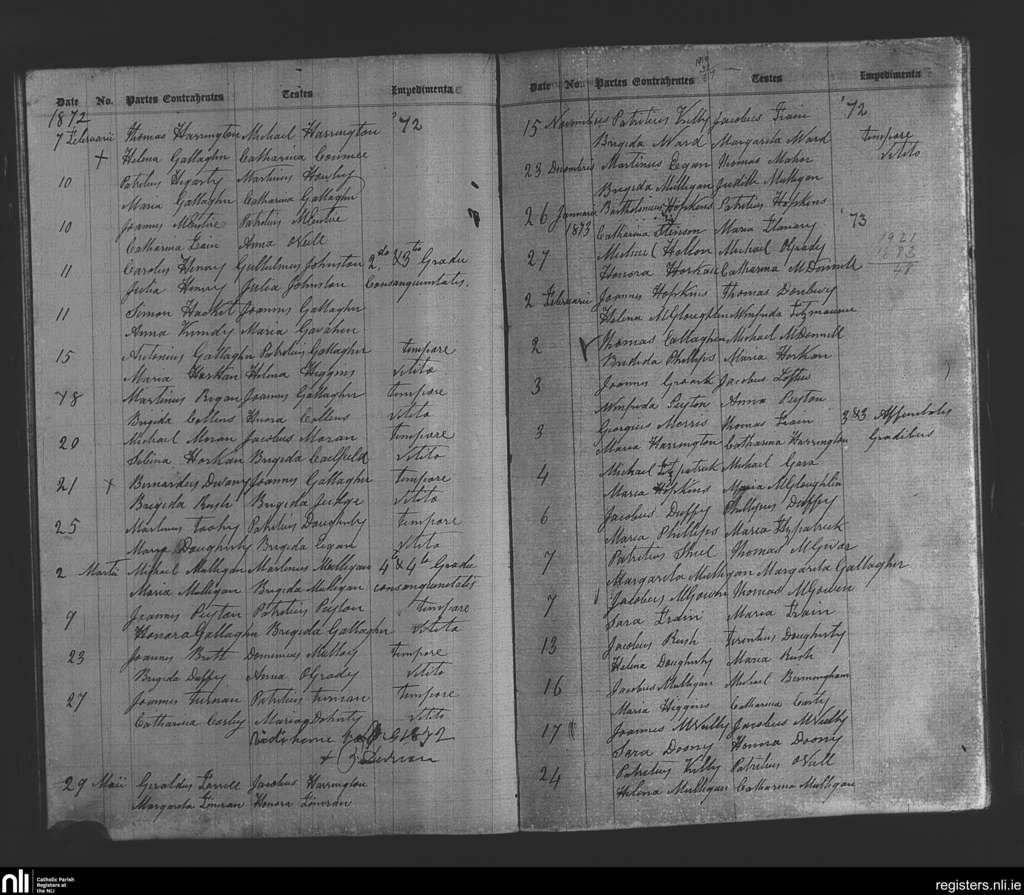 Date No. Partes Contrahentes Testes Impedimenta
1872
7 Februarii Thomas Harrington Michael Harrington '72
+ Helena Gallagher Catharina Conmee
10 Patritius Hegarty Martinus
Maria Gallaghr Catharina Gallaghr
10 Joannes McEntire Patritius McEntire
Catharina Lain Anna O'Neill
11 Carolus Henry Gulielmus Johnston 2do & 3tio Gradu
Julia Henry Julia Johnston Consanguinitatis.
11 Simon Hacket Joannes Gallaghr
Anna Maria Gavahen
15 Antonius Gallaghr Patritius Gallaghr tempore
Maria Horkan Helena Higgins vetito
18 Martinus Regan Joannes Gallaghr tempore
Brigida Collens Honora Collens vetito
20 Michael Moran Jacobus Moran tempore
Sabina Horkan Brigida Caulfield vetito
21 + Bernardus Devany Joannes Gallagher tempore
Brigida Rush Brigida Judge vetito
25 Martinus Patritius Dougherty tempore
Maria Dougherty Brigida Egan vetito
2 Martii Michael Mulligan Martinus Mulligan 4to & 4to Gradu
Maria Mulligan Brigida Mulligan consanguinitatis
9 Joannes Peyton Patritius Peyton tempore
Honora Gallaghr Brigida Gallagher vetito
23 Joannes Brett Dominicus Mulloy tempore
Brigida Duffy Anna O'Grady vetito
27 Joannes Turnan Patritius Turnan tempore
Catharina Carley Maria Doherty vetito
1872
+
29 Maii Geraldus Farrell Jacobus Harrington
Margarita Honora
Date No. Partes Contrahentes Testes Impedimenta
15 Novembris Patritius Kilby Jacobus Irain '72
Brigida Ward Margarita Ward tempore
23 Decembris Martinus Egan Thomas Maher vetito
Brigida Mulligan Judith Mulligan
26 Januarii Bartholomeus Hopkins Patritius Hopkins
1873 Catharina Stenson Maria Flanary '73
27 Michael Helion Michael O'Grady 1921
Honora Horkan Catharina McDonnell
2 Februarii Joannes Hopkins Thomas
Helena McGloughlin Winfrida Fitzmaurice
2 Thomas Callaghen Michael McDonnell
Bridida Phillips Maria Horkan
3 Joannes Jacobus Loftus
Winfrida Peyton Anna Peyton
3 Georgius Morris Thomas Irain 3 & 3 Affinitatis
Maria Harrington Catharina Harrington Gradibus
4 Michael Fitzpatrick Michael Gara
Maria Hopkins Maria McGloughlin
6 Jacobus Duffy Philippus Duffy
Maria Phillips Maria Fitzpatrick
7 Patritius Shiel Thomas McGivar
Margarita Mulligan Margarita Gallagher
7 Jacobus McGowen Thomas McGowen
Sara Irain Maria Irain
13 Jacobus Rush Terentius Dougherty
Helena Dougherty Maria Rush
16 Jacobus Mulligan Michael Bermingham
Maria Higgins Catharina Carty
17 Joannes McNulty Jacobus McNulty
Sara Doony Honora Doony
24 Patritius Kilby Patritius O'Neill
Helena Mulligan Catharina Mulligan
nli Catholic Parish
Registers at
the NLI
registers.nli.ie